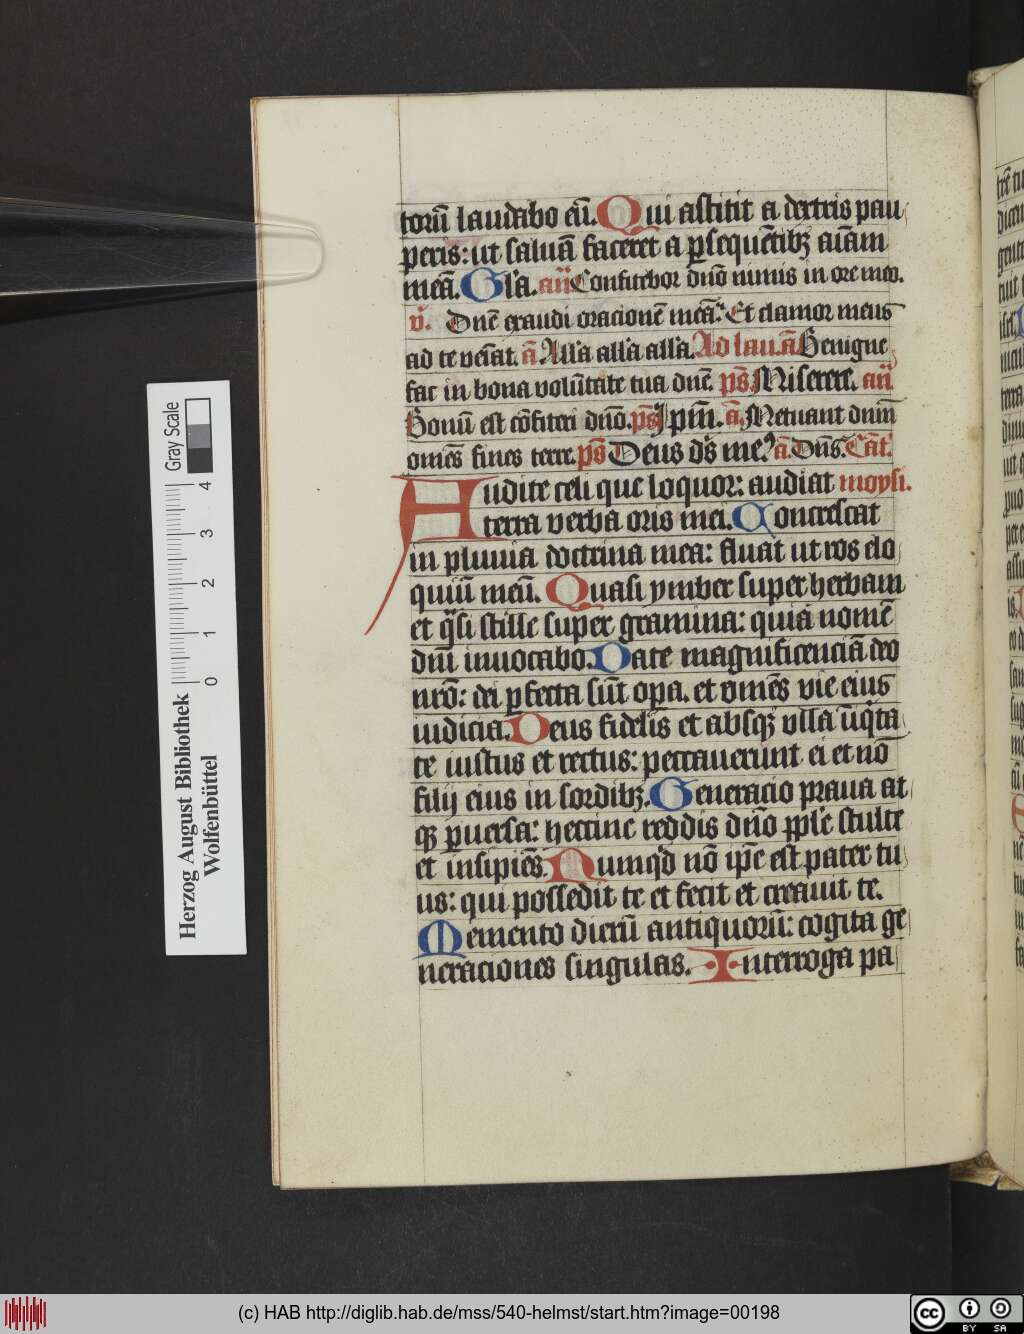 torū laudabo eū. Qui astitit a dextris pau
peris: ut saluā faceret a ꝑsequētibꝫ aīam
meā. Gl'a. añ Confitebor dnō nimis in ore meo.
v̄. Dnē exaudi oracionē meā. Et clamor meus
ad te veīat. ā All'a all'a all'a. Ad lau. ā Benigne
fac in bona volūtate tua dnē. ps̄ Miserere. añ
Bonū est cōfiteri dnō. ps̄ Ipm̄. ā. Metuant dnm̄
omēs fines terre. ps̄ Deus ds̄ me9 ā. Dns̄. Cāt.
Audite celi que loquor: audiat moysi.
terra verba oris mei. Concrescat
in pluuia doctrina mea: fluat ut ros elo
quiū meū. Quasi ymber super herbam
et qͣsi stille super gramina: quia nomē
dnī inuocabo. Date magnificenciā deo
nrō: dei ꝑfecta sūt oꝑa. et omēs vie eius
iudicia. Deus fidelis et absqꝫ vlla iīqͥta
te iustus et rectus: peccauerunt ei et nō
filij eius in sordibꝫ. Generacio praua at
qꝫ ꝑuersa: heccine reddis dnō pple stulte
et insipiēs. Numqͥd nō ipē est pater tu
us: qui possedit te et fecit et creauit te.
Memento dierū antiquorū: cogita ge
neraciones singulas. Interroga pa
Gray Scale
0 1 2 3 4
Herzog August Bibliothek
Wolfenbüttel
(c) HAB http://diglib.hab.de/mss/540-helmst/start.htm?image=00198
cc BY SA